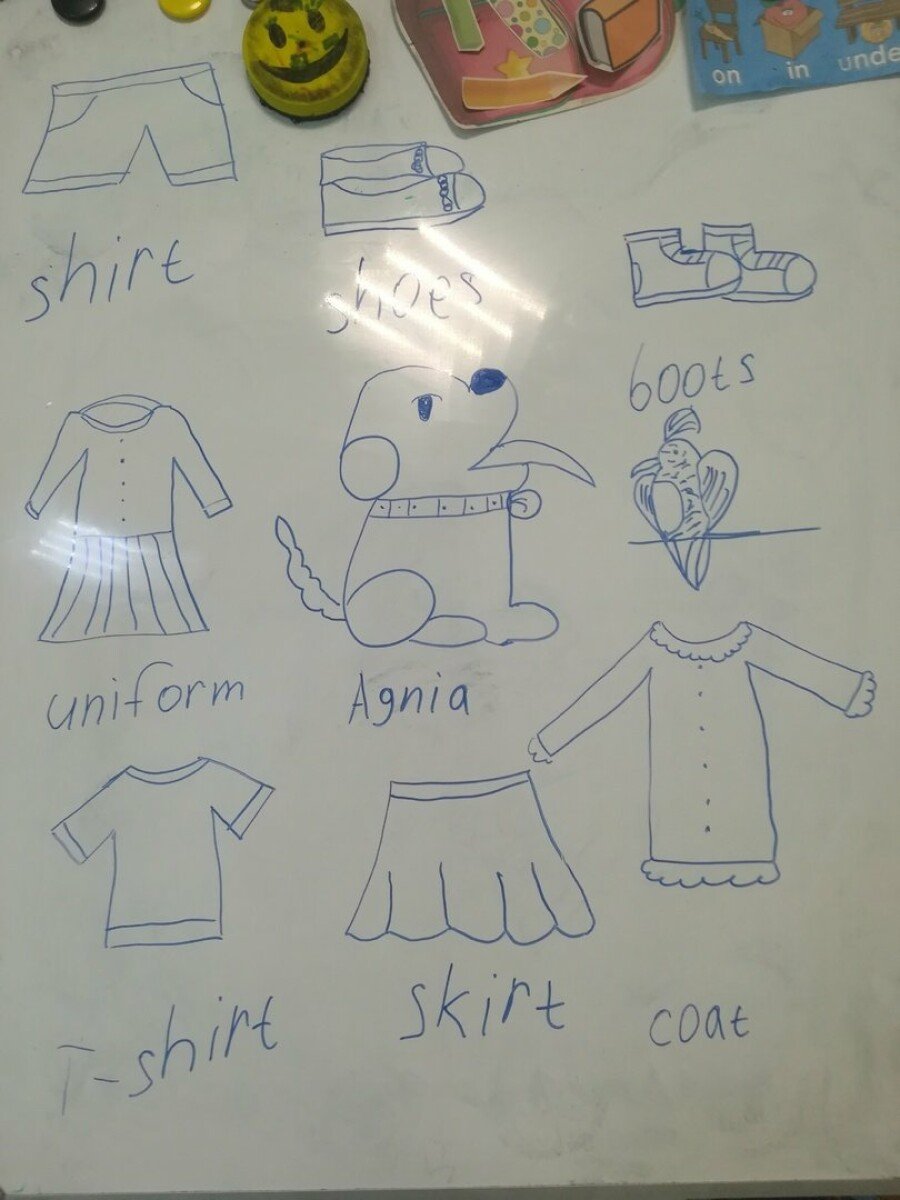 on in unde
shirt
shoes
boots
uniform
Agnia
T-shirt
skirt
coat